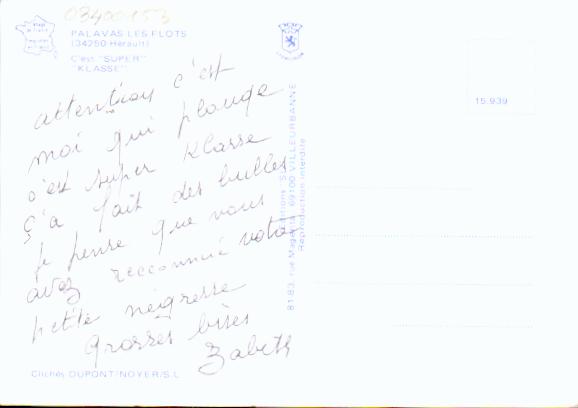 03400153
PALAVAS LES FLOTS
(34250 Hérault)
C'est "SUPER"
"KLASSE"
attention c'est
moi qui plonge
c'est super Klasse
ç'a fait des bulles
je pense que vous
avez reconnue votre
petite négresse
grosses bises
Zabeth
Clichés DUPONT/NOYER/S.L
81-83, rue Magenta - 69100 VILLEURBANNE
Reproduction interdite
15.939